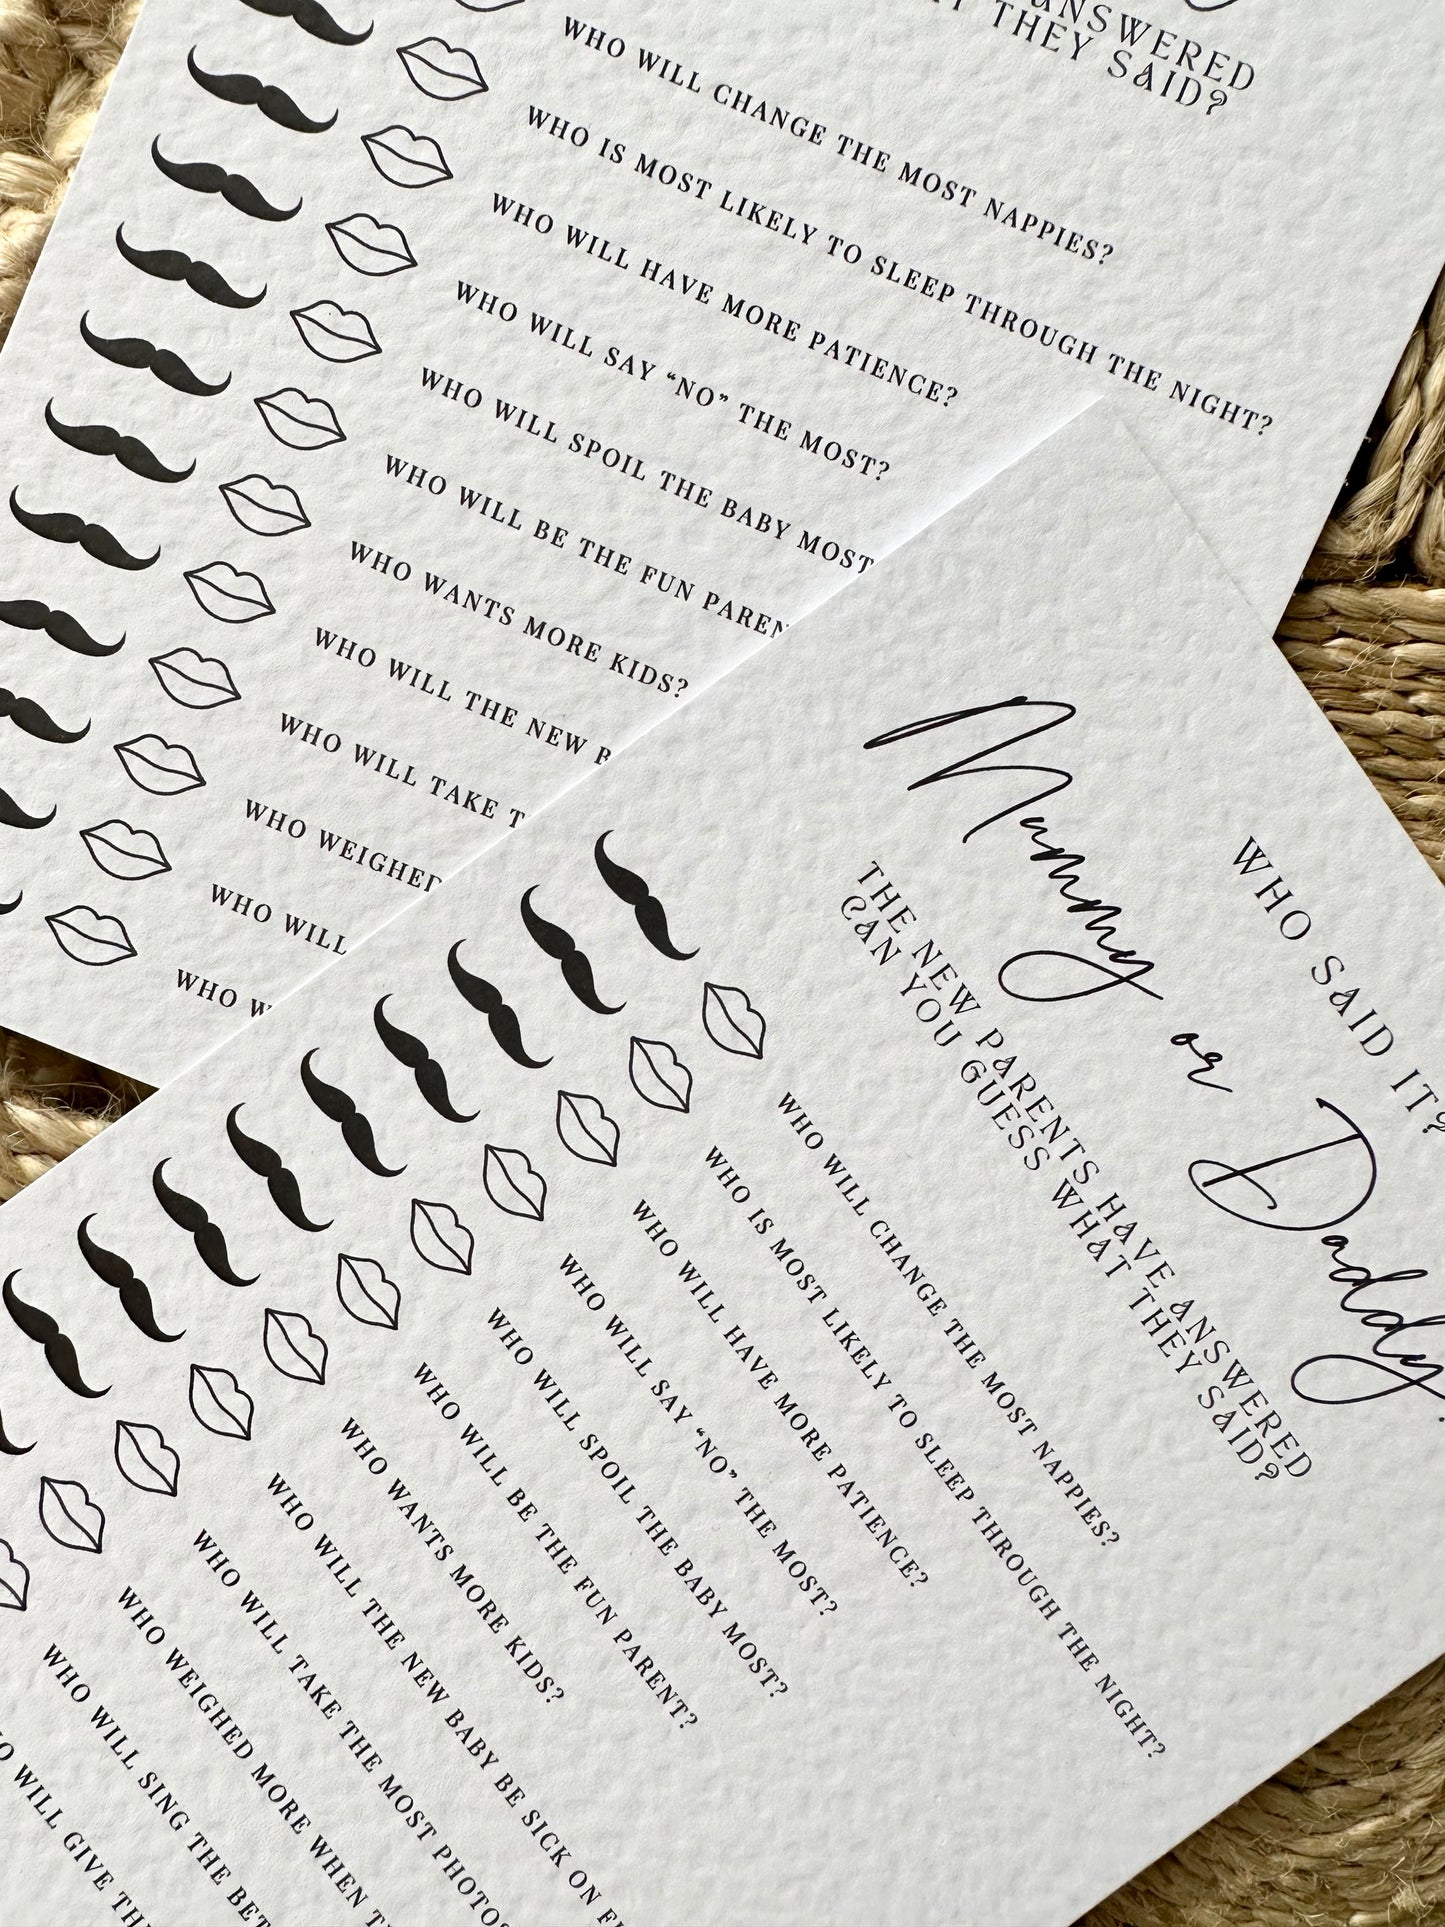 ANSWERED
THEY SAID?
WHO WILL CHANGE THE MOST NAPPIES?
WHO IS MOST LIKELY TO SLEEP THROUGH THE NIGHT?
WHO WILL HAVE MORE PATIENCE?
WHO WILL SAY “NO” THE MOST?
WHO WILL SPOIL THE BABY MOST
WHO WILL BE THE FUN PAREN
WHO WANTS MORE KIDS?
WHO WILL THE NEW
WHO WILL TAKE T
WHO WEIGHED
WHO WILL
WHO W
WHO SAID IT?
Mummy or Daddy
THE NEW PARENTS HAVE ANSWERED
CAN YOU GUESS WHAT THEY SAID?
WHO WILL CHANGE THE MOST NAPPIES?
WHO IS MOST LIKELY TO SLEEP THROUGH THE NIGHT?
WHO WILL HAVE MORE PATIENCE?
WHO WILL SAY “NO” THE MOST?
WHO WILL SPOIL THE BABY MOST?
WHO WILL BE THE FUN PARENT?
WHO WANTS MORE KIDS?
WHO WILL THE NEW BABY BE SICK ON
WHO WILL TAKE THE MOST PHOTOS
WHO WEIGHED MORE WHEN
WHO WILL SING THE BET
WILL GIVE TH